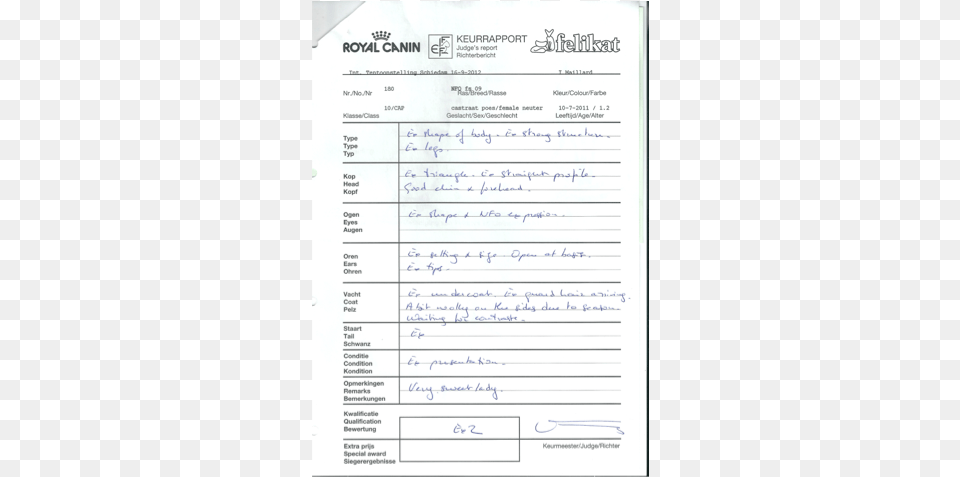 ROYAL CANIN
KEURRAPPORT
Judge's report
Richterbericht
felikat
Int. Tentoonstelling Schiedam 16-9-2012 T Maillard
180 NFO fs 09
Nr./No./Nr Ras/Breed/Rasse Kleur/Colour/Farbe
10/CAP castraat poes/female neuter 10-7-2011 / 1.2
Klasse/Class Geslacht/Sex/Geschlecht Leeftijd/Age/Alter
Type
Type
Typ
Ex shape of body. Ex strong structure.
Ex legs.
Kop
Head
Kopf
Ex triangle. Ex straight profile.
Good chin & forehead.
Ogen
Eyes
Augen
Ex shape & NFO expression.
Oren
Ears
Ohren
Ex setting & size. Open at base.
Ex tips.
Vacht
Coat
Pelz
Ex undercoat. Ex guard hair arriving.
A bit wolly on the sides due to season
Waiting for contraste.
Staart
Tail
Schwanz
Ex
Conditie
Condition
Kondition
Ex presentation.
Opmerkingen
Remarks
Bemerkungen
Very sweet lady.
Kwalificatie
Qualification
Bewertung
Ex 2
Keurmeester/Judge/Richter
Extra prijs
Special award
Siegerergebnisse